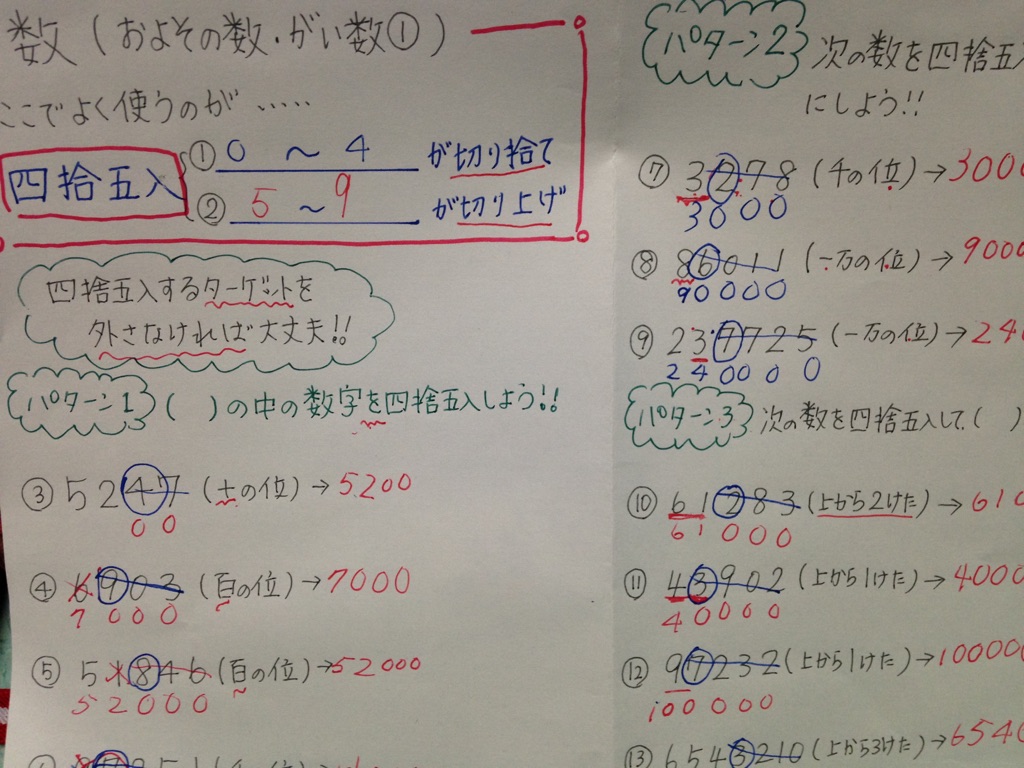 数(およその数・がい数①)
ここでよく使うのが‥‥‥
四捨五入
① 0 ～ 4 が切り捨て
② 5 ～ 9 が切り上げ
四捨五入するターゲットを
外さなければ大丈夫!!
パターン1 ( )の中の数字を四捨五入しよう!!
③ 5247 (十の位)→5200
00
④ 6903 (百の位)→7000
7000
⑤ 51846 (百の位)→52000
52000
パターン2 次の数を四捨五入
にしよう!!
⑦ 3278 (千の位)→3000
3000
⑧ 86011 (一万の位)→9000
90000
⑨ 237725 (一万の位)→24
240000
パターン3 次の数を四捨五入して( )
⑩ 61283 (上から2けた)→610
61000
⑪ 43902 (上から1けた)→4000
40000
⑫ 97232 (上から1けた)→100000
100000
⑬ 6545210 (上から3けた)→6540